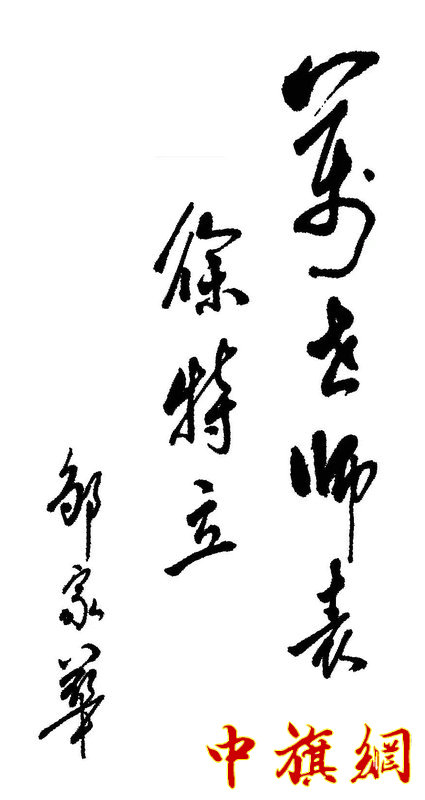 萬世师表
徐特立
邹家華
中旗網